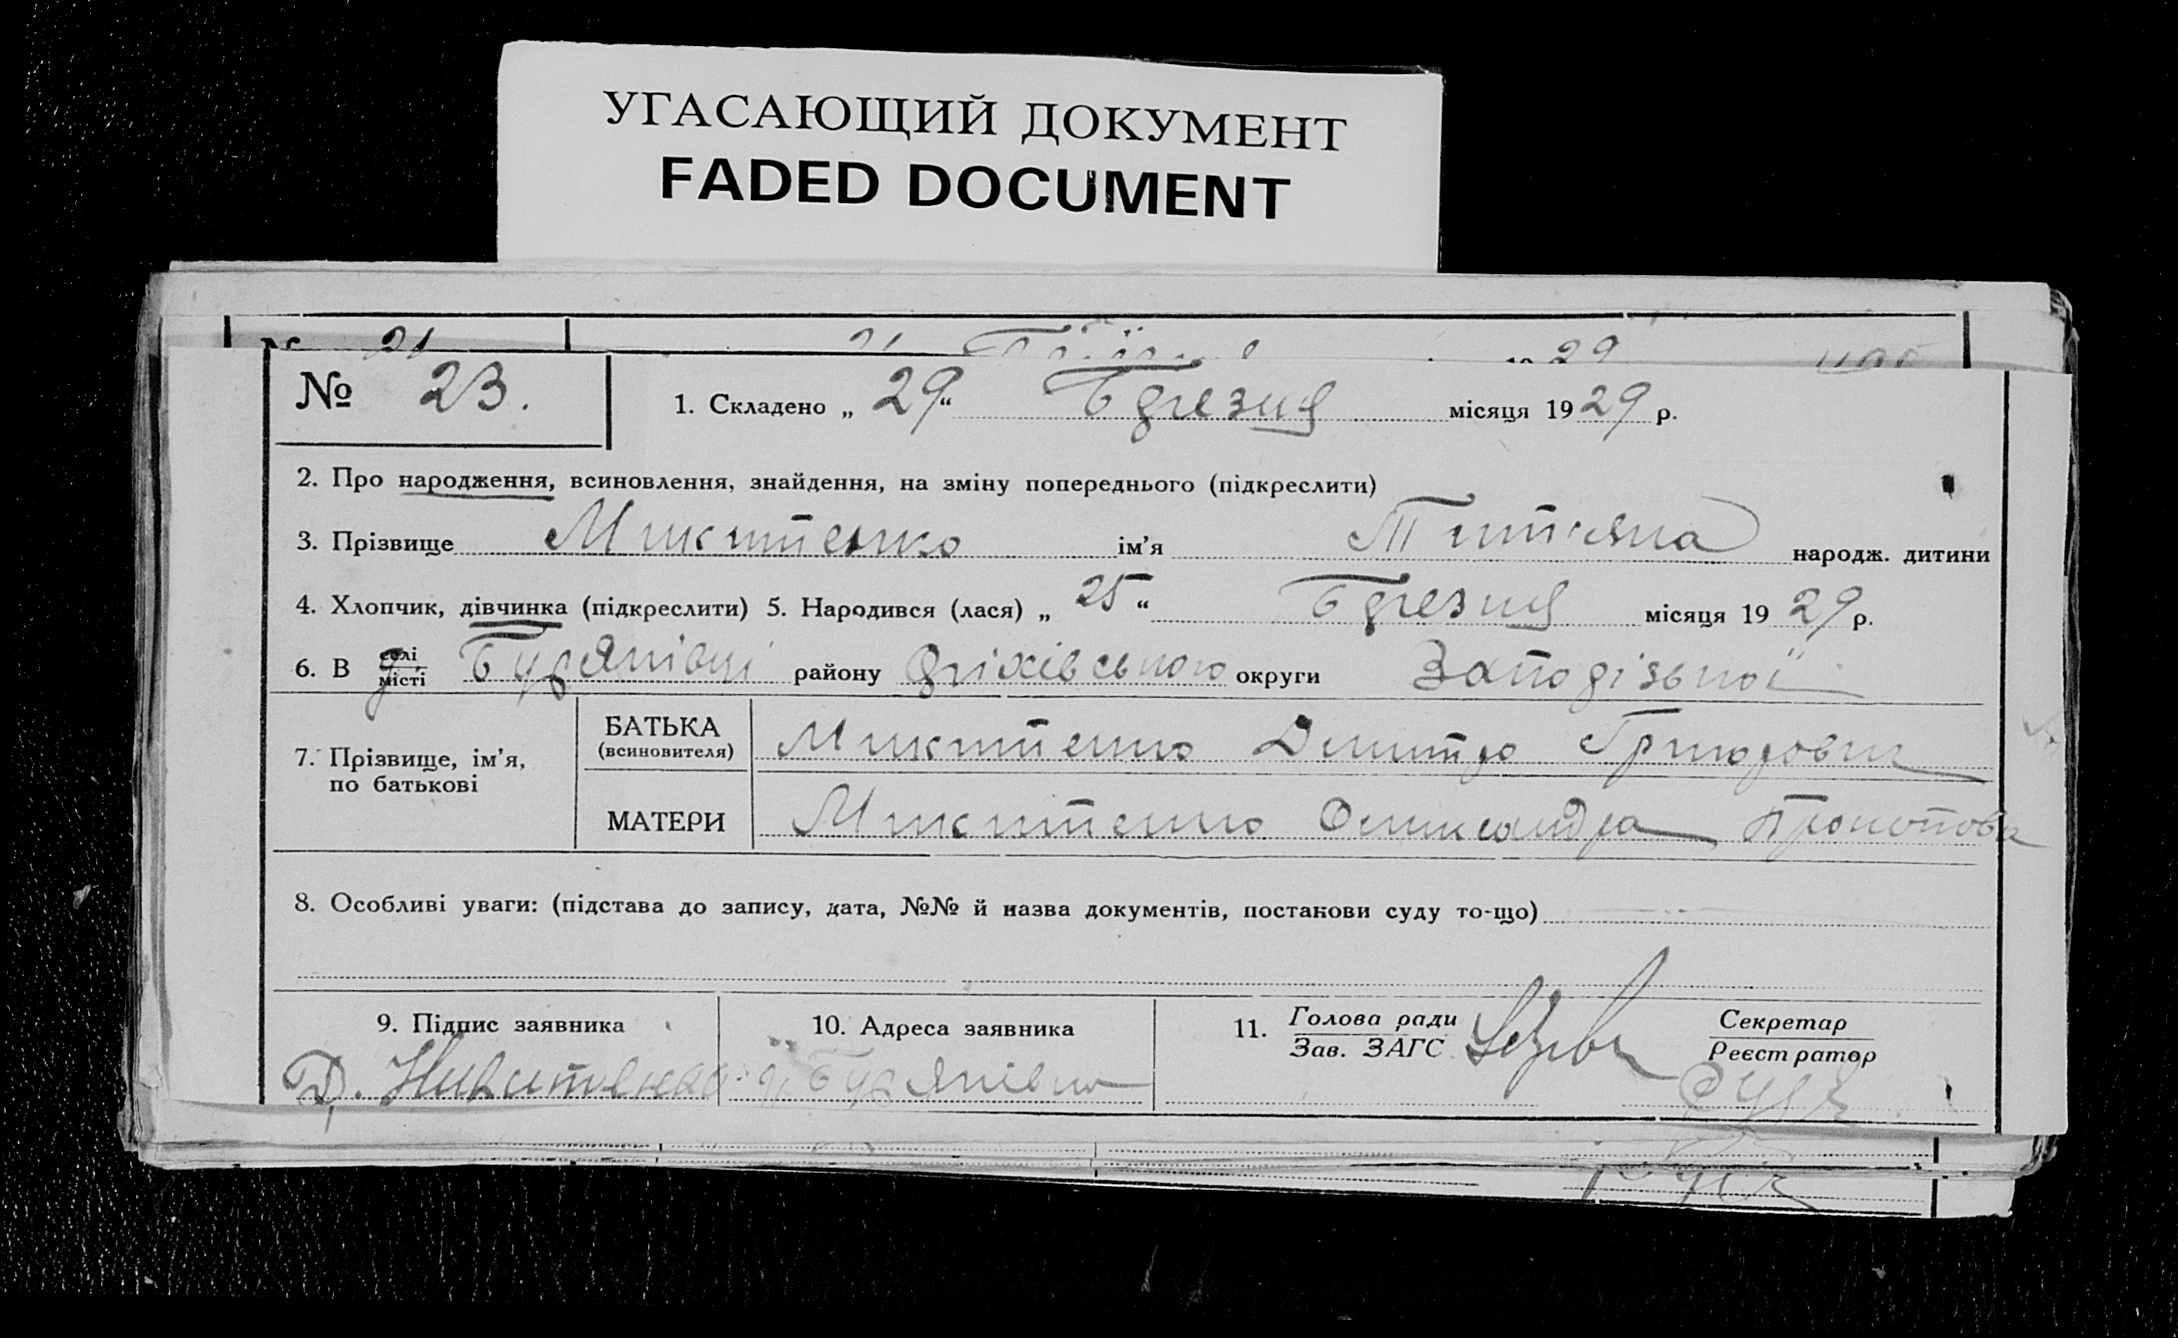 УГАСАЮЩИЙ ДОКУМЕНТ
FADED DOCUMENT
21 29
№ 23. 1. Складено „ 29 “ Березня місяця 19 29 р.
2. Про народження, всиновлення, знайдення, на зміну попереднього (підкреслити)
3. Прізвище Микитенко ім’я Титяна народж. дитини
4. Хлопчик, дівчинка (підкреслити) 5. Народився (лася) „ 25 “ Березня місяця 19 29 р.
6. В селі місті Бурянівці району Оріхівського округи Запорізької
7. Прізвище, ім’я, по батькові
БАТЬКА (всиновителя) Микитенко Дмитро Григорович
МАТЕРИ Микитенко Олександра Прокопова
8. Особливі уваги: (підстава до запису, дата, №№ й назва документів, постанови суду то-що)
9. Підпис заявника 10. Адреса заявника 11. Голова ради Секретар
Зав. ЗАГС Реєстратор
Д. Никитенко